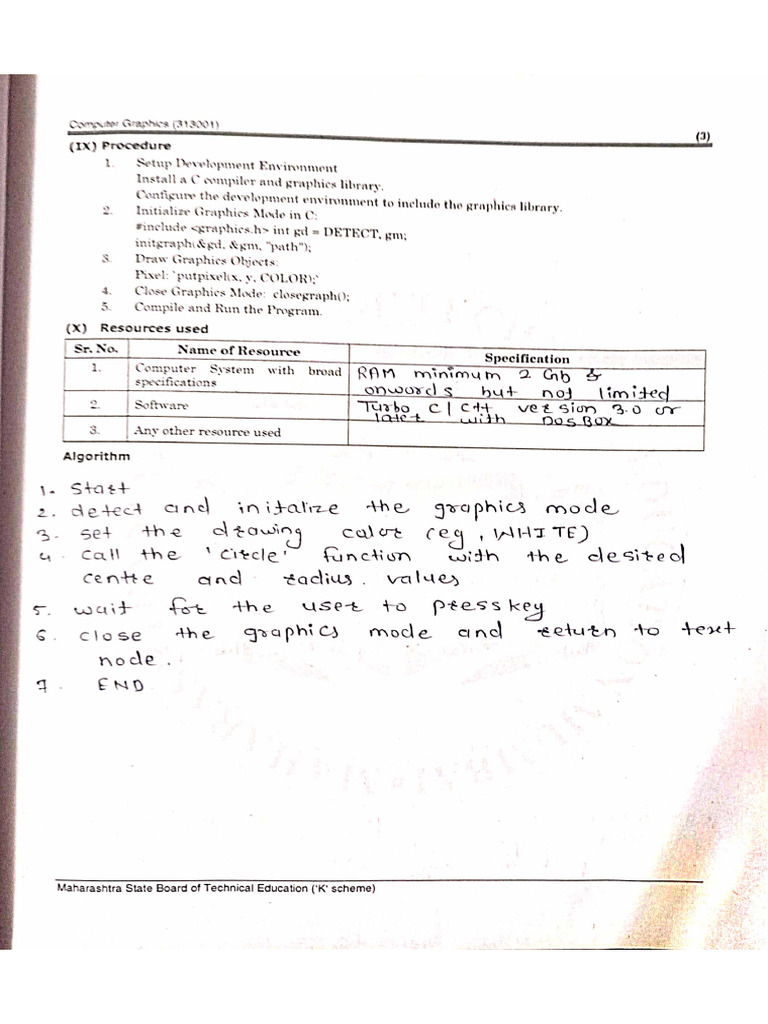 Computer Graphics (313001)
(3)
(IX) Procedure
1. Setup Development Environment
Install a C compiler and graphics library.
Configure the development environment to include the graphics library.
2. Initialize Graphics Mode in C:
#include <graphics.h> int gd = DETECT, gm;
initgraph(&gd, &gm, "path");
3. Draw Graphics Objects:
Pixel: `putpixel(x, y, COLOR);`
4. Close Graphics Mode: closegraph();
5. Compile and Run the Program.
(X) Resources used
Sr. No. Name of Resource Specification
1. Computer System with broad specifications RAM minimum 2 Gb & onwords but not limited
2. Software Turbo C/C++ version 3.0 or later with DOSBOX
3. Any other resource used
Algorithm
1. Start
2. detect and initalize the graphics mode
3. set the drawing color (eg, WHITE)
4. call the 'circle' function with the desired
centre and radius. values
5. wait for the user to press key
6. close the graphics mode and return to text
node.
7. END
Maharashtra State Board of Technical Education ('K' scheme)